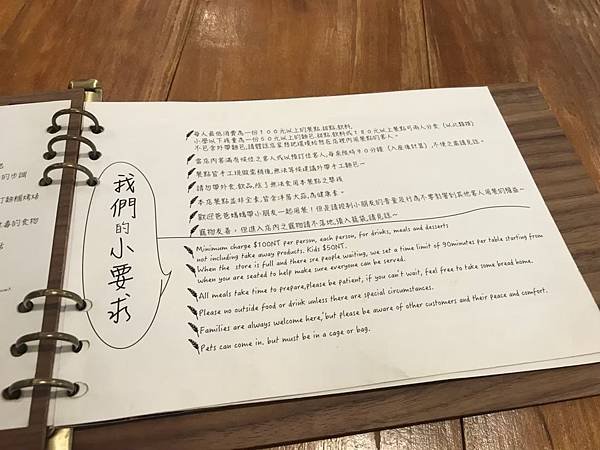 的步調
打麵糰烤焙
毒的食物
我們的小要求
每人最低消費為一份100元以上的餐點.甜點.飲料.
小學以下孩童為一份50元以上的麵包.甜點.飲料
180元以上餐點可兩人分食
不包含外帶麵包,請體諒店家想把環境給想在店裡內用餐點的客人.
當店內客滿有候位之客人或以預訂位客人,每座限時90分鐘(入座後計算),不便之處請見諒.
餐點皆手工現做需稍後,無法等候建議外帶手工麵包~
請勿帶外食.飲品,除了無法食用本餐點之嬰孩
本店餐點並非全素,皆含洋蔥大蒜,為健康素.
歡迎爸爸媽媽帶小朋友一起用餐!但是請控制小朋友的音量及行為不要影響到其他客人用餐的權益~
寵物友善,但進入店內之寵物請不落地,請入籠袋,請見諒~
Minimum charge $100NT per person, each person, for drinks, meals and desserts
not including take away products. Kids $50NT.
When the store is full and there sre people waiting, we set a time limit of 90minutes per table starting from
when you are seated to help make sure everyone can be served.
All meals take time to prepare,please be patient, if you can't wait, feel free to take some bread home.
Please no outside food or drink unless there are special circumstances.
Families are always welcome here,but please be aware of other customers and their peace and comfort.
Pets can come in, but must be in a cage or bag.